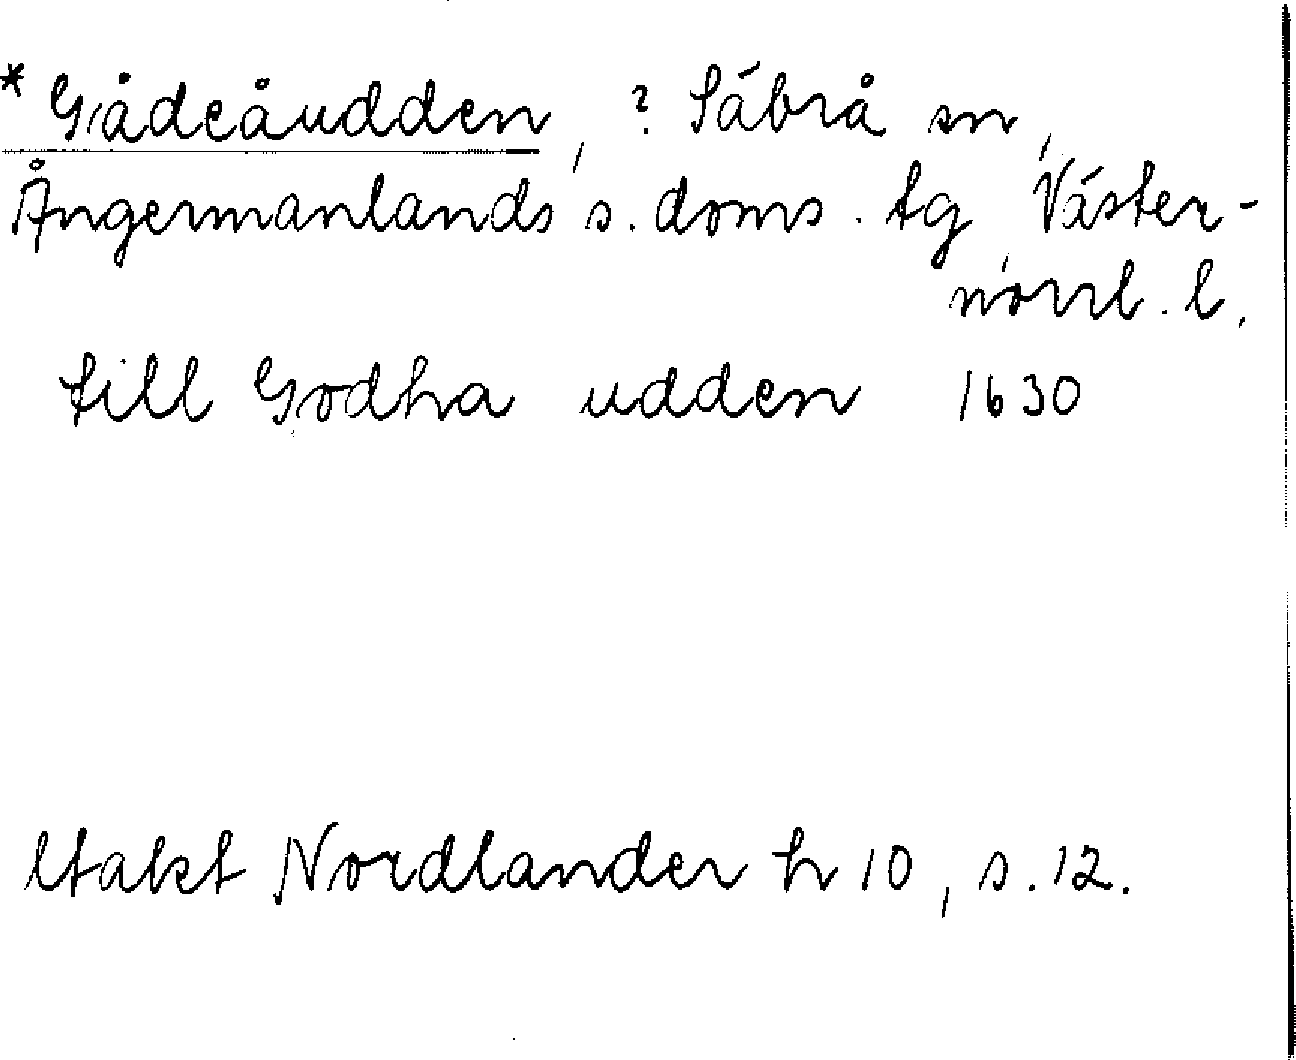 * Gådeåudden, ? Säbrå sn,
Ångermanlands s. doms. tg, Väster-
norrl. l.
till Godha udden 1630
Utakt Nordlander h 10, s. 12.